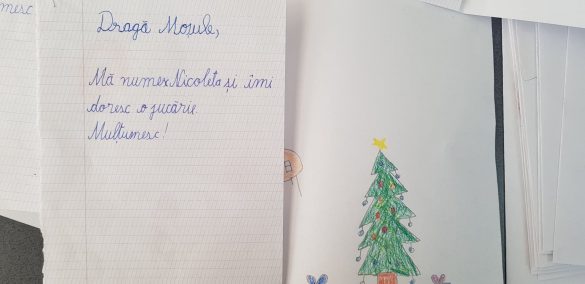 mesc
Dragă Moșule,
Mă numesc Nicoleta și îmi
doresc o jucărie.
Mulțumesc!